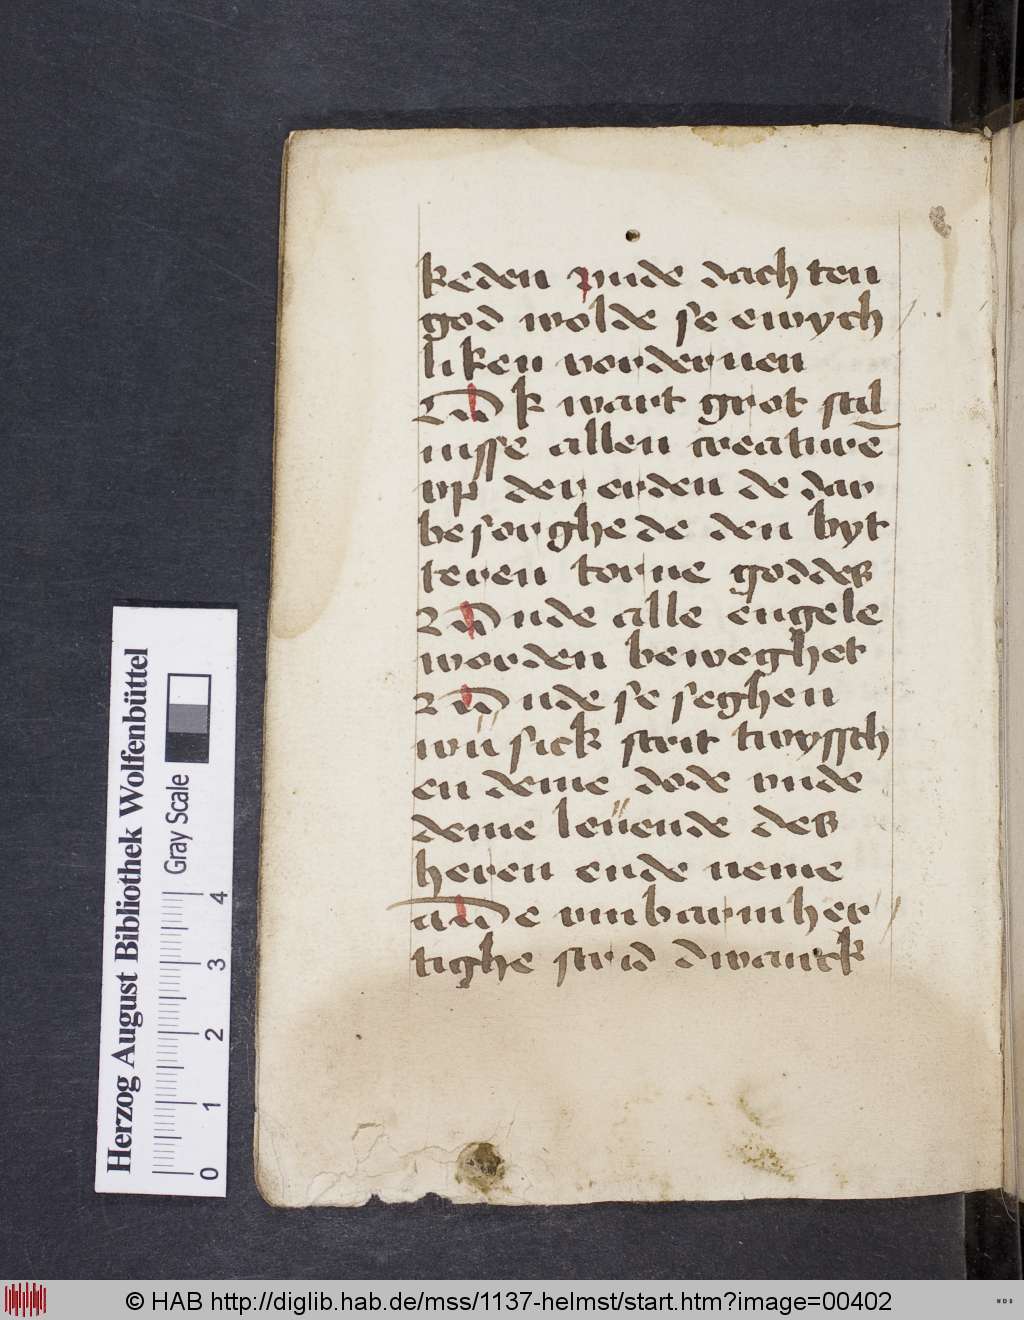 keden vnde dachten
god wolde se ewych
liken vorderuen
Ok wart grot stil
nisse allen creaturē
vp der erden de dar
besorghede den byt
teren torne goddes
Unde alle engele
worden beweghet
Unde se seghen
wü sick strit twyssch
en deme dode vnde
deme leüende des
heren ende neme
De vnbarmher
tighe strid dwanck
Herzog August Bibliothek Wolfenbüttel
Gray Scale
0 1 2 3 4
© HAB http://diglib.hab.de/mss/1137-helmst/start.htm?image=00402